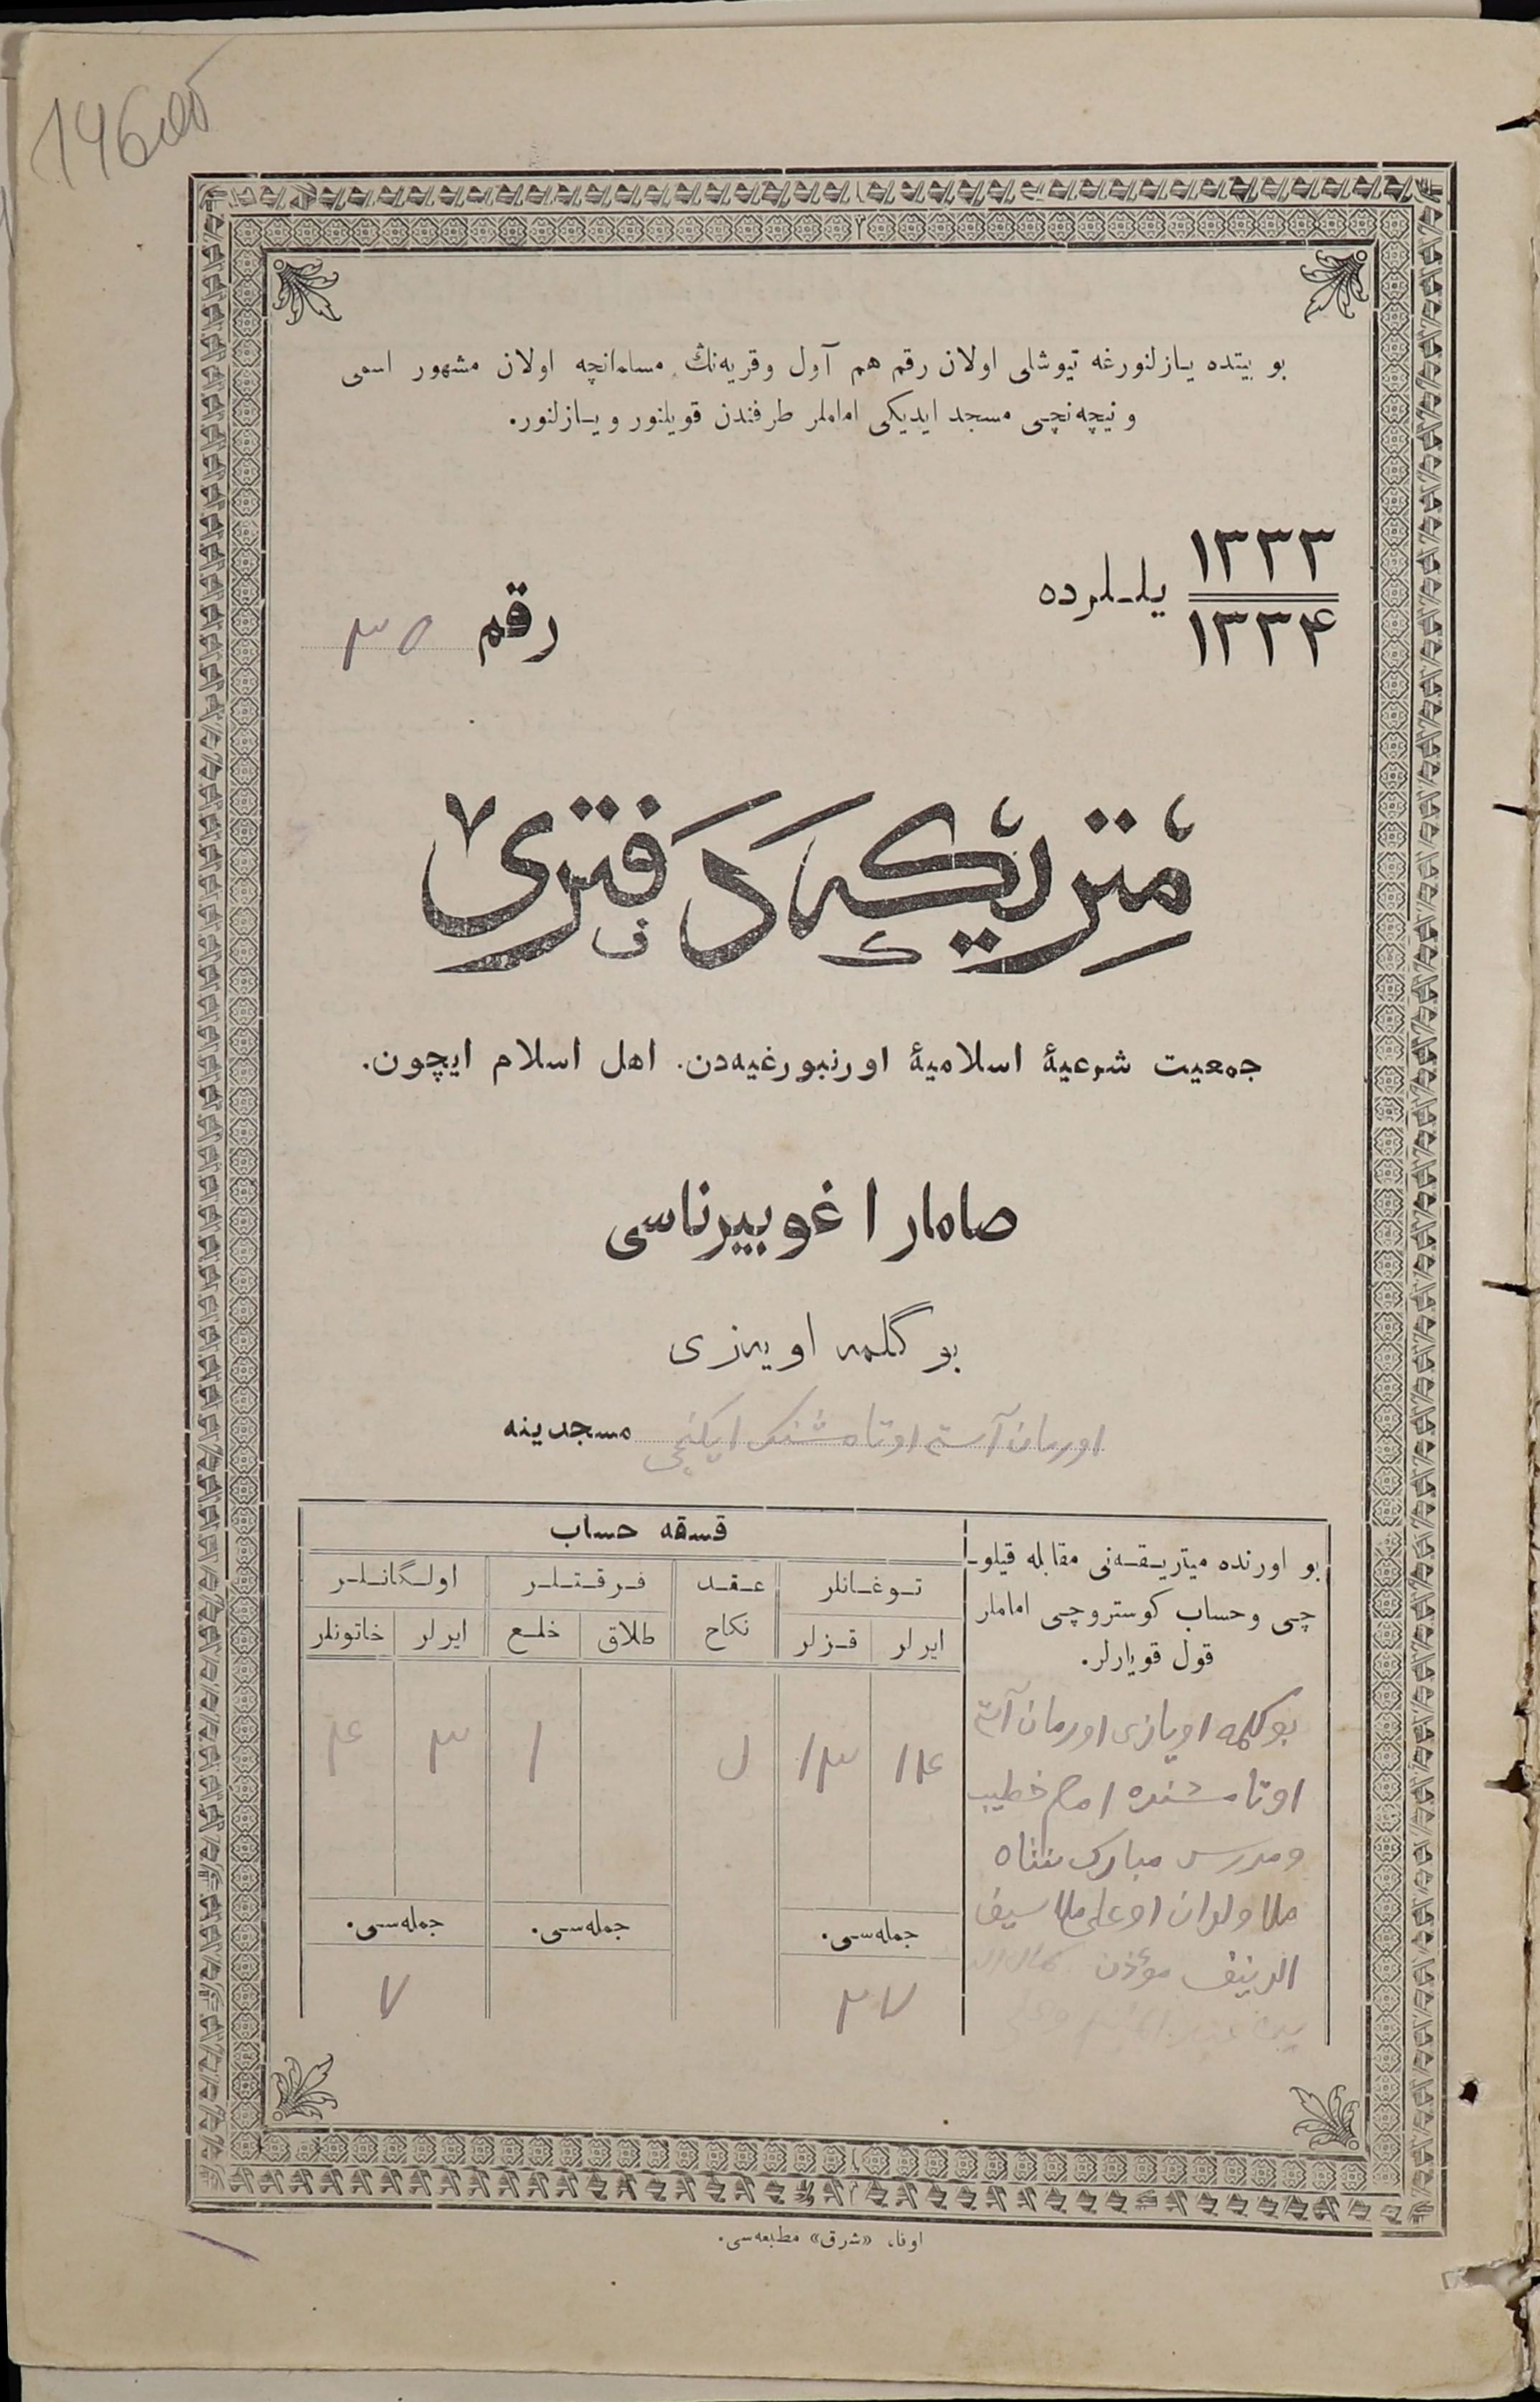 146об
بو بیتده یازلنورغه تیوشلی اولان رقم هم آول وقریه‌نڭ مسلمانچه اولان مشهور اسمی
ونیچه‌نچی مسجد ایدیکی اماملر طرفندن قویلنور ویازلنور.
۱۳۳۳
۱۳۳۴
یللرده
رقم ۳۵
مِتریکه دفتری
جمعیت شرعیۀ اسلامیۀ اورنبورغیه‌دن. اهل اسلام ایچون.
صامارا غوبیرناسی
بوگلمه اویه‌زی
اورمان آستی اوتامشنك ایکنچی مسجدینه
قسقه حساب
بو اورنده میتریقه‌نی مقابله قیلو-
چی وحساب کوستروچی اماملر
قول قویارلر.
توغانلر
عقد
نکاح
فرقتلر
اولگانلر
ایرلر
قزلر
طلاق
خلع
ایرلر
خاتونلر
۱۴
۱۳
۱
۳
۴
بوکلمه اویازی اورمان آستی
اوتامشنده امام خطیب
ومدرس مبارك شاه
ملا ولدان اوغلی ملا سیف
الدینف مؤذن
جمله‌سی.
جمله‌سی.
جمله‌سی.
۲۷
۷
اوفا، «شرق» مطبعه‌سی.